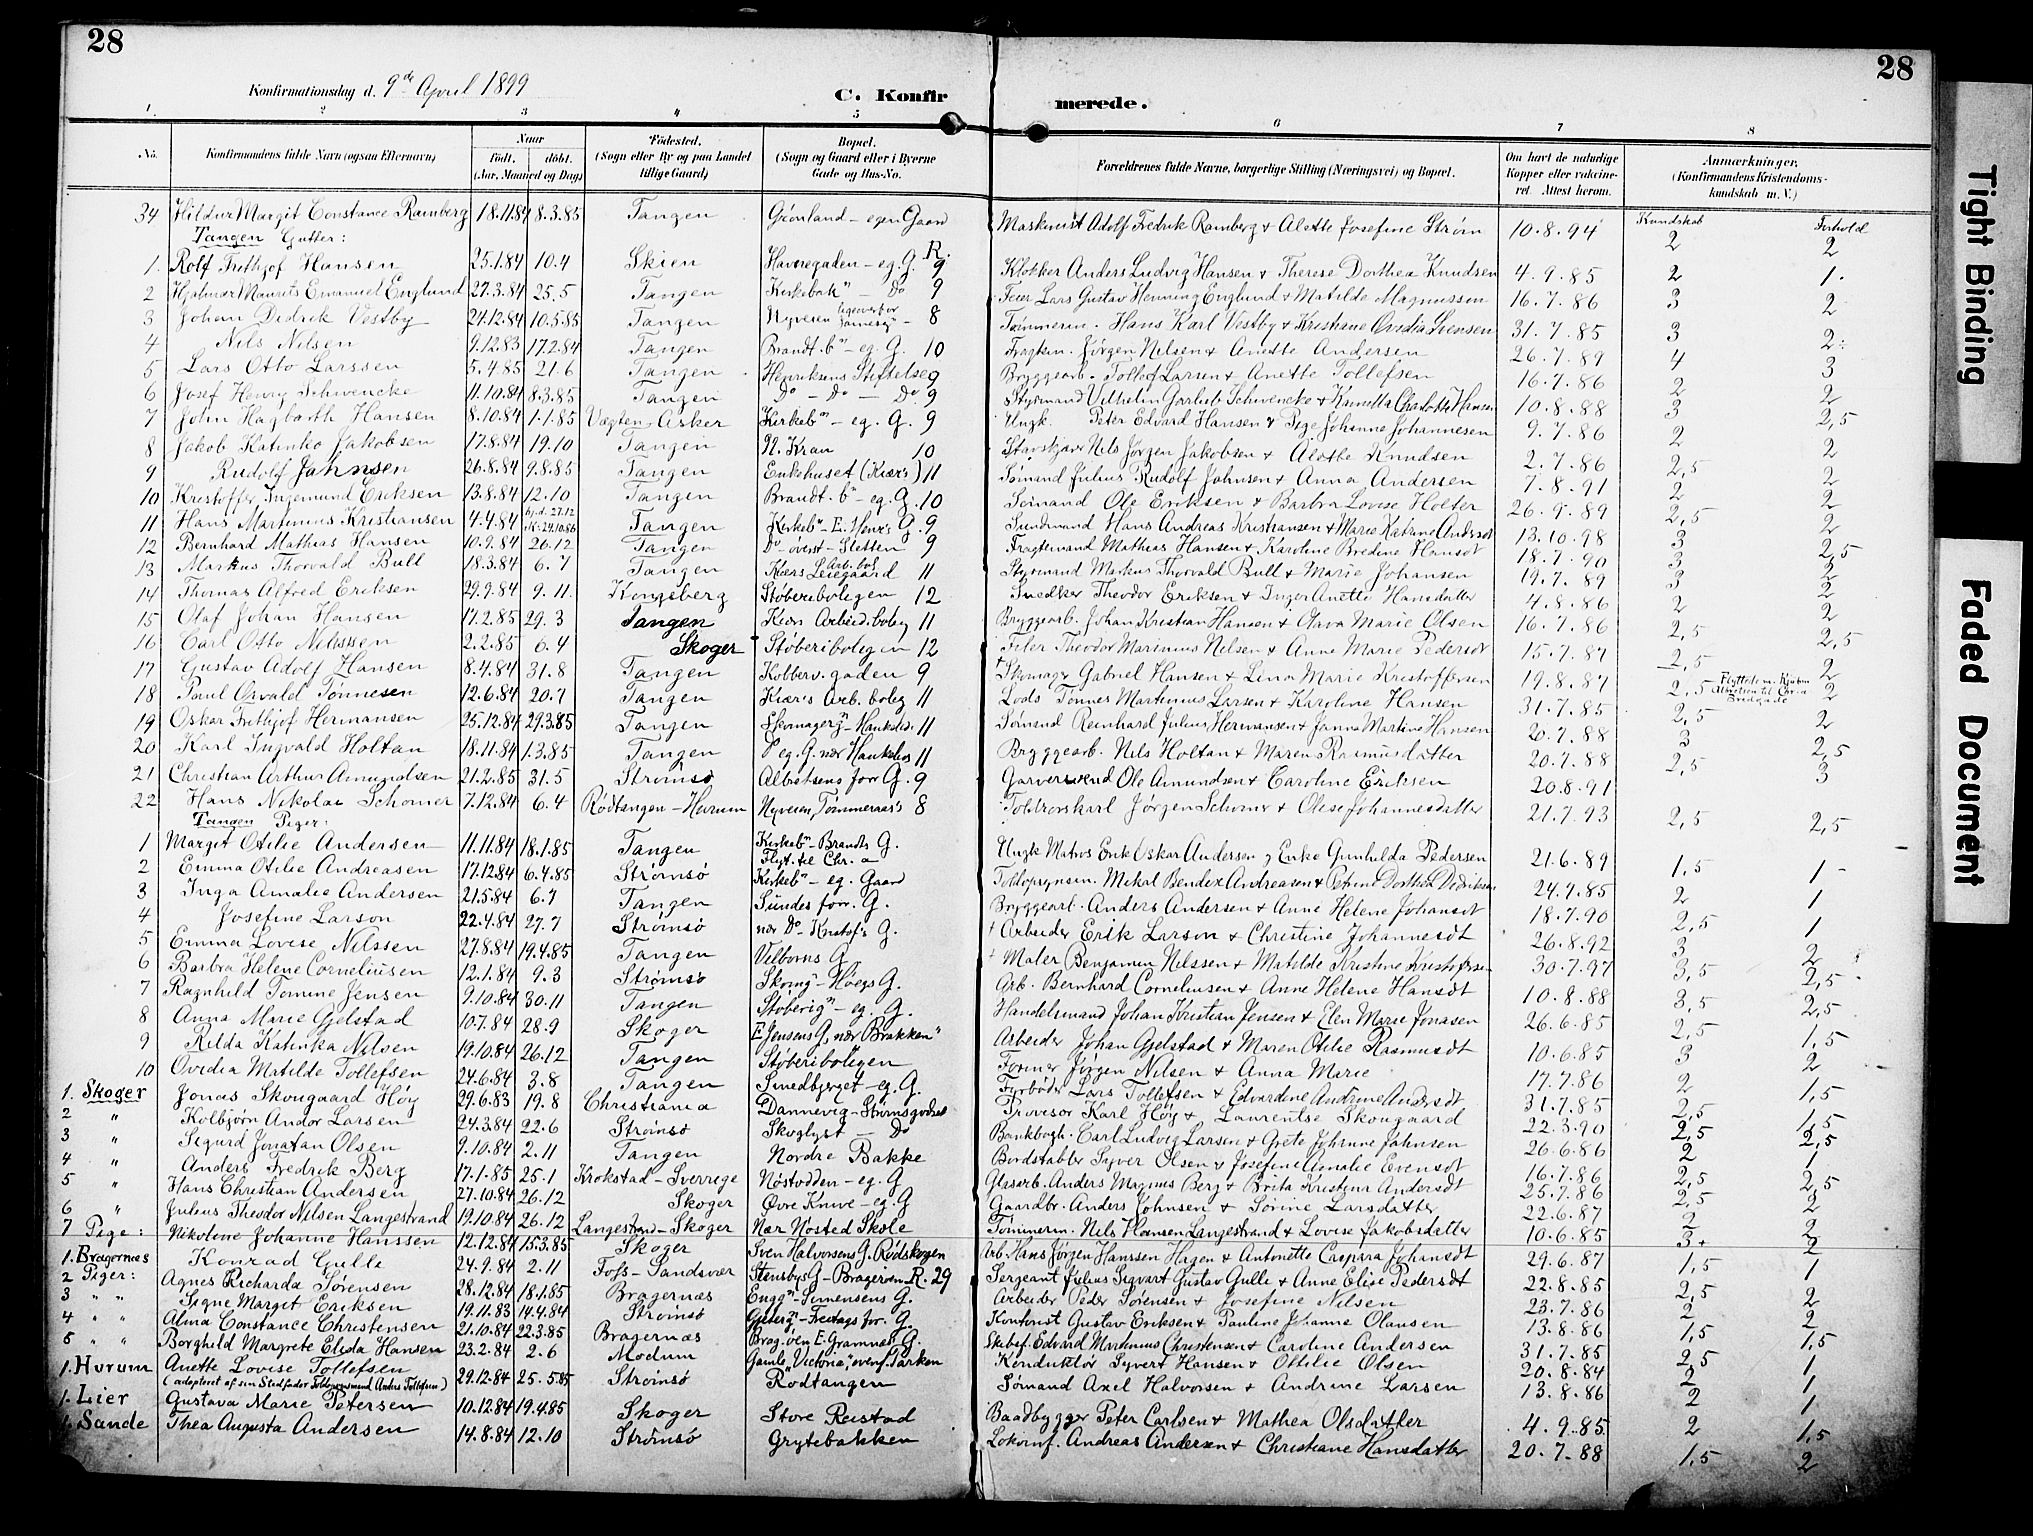 28
28
Konfirmationsdag d. 9de April 1899
C. Konfirmerede.
1. 2 3 4 5 6 7 8
No. Konfirmandens fulde Navn (ogsaa Efternavn) Naar født. døbt. (Aar, Maaned og Dag) Fødested. (Sogn eller By og paa Landet tillige Gaard) Bopæl. (Sogn og Gaard eller i Byerne Gade og Hus-No. Forældrenes fulde Navne, borgerlige Stilling (Næringsvei) og Bopæl. Om havt de naturlige Kopper eller vaccineret. Attest herom. Anmærkninger, (Konfirmandens Kristendomskundskab m. V.)
Kundskab Forhold
34 Hildur Margit Constance Ramberg 18.11.84 8.3.85 Tangen Grønland - egen Gaard Maskinist Adolf Fredrik Ramberg & Alette Josefine Strøm 10.8.94 2 2
Tangen Gutter:
1. Rolf Frithjof Hansen 25.1.84 10.4 Skien Havnegaden - eg. G. R. 9 Klokker Anders Ludvig Hansen & Therese Dorthea Knudsen 4.9.85 2 1.
2 Hjalmar Maurits Emanuel Englund 27.3.84 25.5 Tangen Kirkebak" - Do 9 Feier Lars Gustav Henning Englund & Matilde Magnussen 16.7.86 3 2
3 Johan Didrik Vestby 24.12.84 10.5.85 Tangen Nyveien 8 Tømmerm. Hans Karl Vestby & Kristiane Ovidia Svensen 31.7.85 3 2
4 Nils Nilsen 9.12.83 17.2.84 Tangen Brandt.b" - eg. G. 10 Fragtem. Jørgen Nilsen & Anette Andersen 26.7.89 4 3
5 Lars Otto Larssen 5.4.85 21.6 Tangen Henriksens Stiftelse 9 Bryggearb. Tollef Larsen & Anette Tollefsen 16.7.86 2 2
6 Josef Henry Schwencke 11.10.84 8.3.85 Tangen Do - Do - Do 9 Styrmand Vilhelm Gotlieb Schwencke & Kamilla Charlotte Hansen 10.8.88 3 2,5
7 John Hagbarth Hansen 8.10.84 1.1.85 Vægten - Asker Kirkeb" - eg. G. 9 Ungk. Peter Edvard Hansen & Pige Johanne Johannesen 9.7.86 2 2
8 Jakob Katinko Jakobsen 17.8.84 19.10 Tangen N. Kran 10 Nils Jørgen Jakobsen & Alette Knudsen 2.7.86 2,5 2
9 Rudolf Jahnsen 26.8.84 9.8.85 Tangen Enkehuset (Kiær's) 11 Sømand Julius Rudolf Jahnsen & Anna Andersen 7.8.91 2 2
10 Kristoffer Ingemund Eriksen 13.8.84 12.10 Tangen Brandt.b" - eg. G. 10 Sømand Ole Eriksen & Barbra Lovise Holter 26.9.89 2,5 2
11 Hans Martinius Kristiansen 4.4.84 hj.d. 27.12 K. 24.10.86 Tangen Kirkeb" - E. Henr's G. 9 Sundmand Hans Andreas Kristiansen & Marie Katrine Andersdt 13.10.98 3 2,5
12 Bernhard Mathias Hansen 10.9.84 26.12 Tangen Do - øverst - Sletten 9 Fragtemand Mathias Hansen & Karoline Bredine Hansdt 18.7.90 3 2
13 Markus Thorvald Bull 18.3.84 6.7 Tangen Kiærs Leiegaard 11 Styrmand Markus Thorvald Bull & Marie Johansen 19.7.89 3 2
14 Thomas Alfred Eriksen 29.9.84 9.11 Kongsberg Støberiboligen 12 Snedker Theodor Eriksen & Inger Anette Hansdatter 4.8.86 2 2
15 Olaf Johan Hansen 17.2.85 29.3 Tangen Kiærs Arbeid.bolig 11 Bryggearb. Johan Kristian Hansen & Gava Marie Olsen 16.7.86 2,5 2,5
16 Carl Otto Nilssen 2.2.85 6.4 Skoger Støberiboligen 12 Filer Theodor Marinius Nilsen & Anne Marie Pedersdt 15.7.87 2,5 2
17 Gustav Adolf Hansen 8.4.84 31.8 Tangen Kobberv.gaden 9 † Skomager Gabriel Hansen & Lina Marie Kristoffersen 19.8.87 2,5 2
18 Paul Osvald Tønnesen 12.6.84 20.7 Tangen Kiær's Arb. bolig 11 Lods Tønnes Martinius Larsen & Karoline Hansen 31.7.85 2,5 2
19 Oskar Frithjof Hermansen 25.12.84 29.3.85 Tangen Skomagerg" - Hankeløs 11 Sømand Reinhard Julius Hermansen & Janna Martine Hansen 20.7.88 3 2,5
20 Karl Ingvald Holtan 18.11.84 1.3.85 Tangen P eg. G. nær Hankeløs 11 Bryggearb. Nils Holtan & Maren Rasmusdatter 20.7.88 2,5 3
21 Christian Arthur Amundsen 21.2.85 31.5 Strømsø Albertsens forr G. 9 Garversvend Ole Amundsen & Caroline Eriksen 20.8.91
22 Hans Nikolai Schomer 7.12.84 6.4 Rødtangen - Hurum Nyveien, Tømmeraas's 8 Toldrorskarl Jørgen Schomer & Olese Johannesdatter 21.7.93 2,5 2,5
Tangen Piger:
1 Margit Otilie Andersen 11.11.84 18.1.85 Tangen Kirkeb" - Brandts G. Flyt. til Chr.a Ungk Matros Erik Oskar Andersen & Enke Gunhilda Pedersen 21.6.89 1,5 1
2 Emma Otilie Andreasen 17.12.84 6.4.85 Strømsø Kirkeb" - eg. Gaard Toldopsynsm. Mikal Bendix Andreasen & Petrine Dorthea Didriksen 24.7.85 2 1
3 Inga Amalie Andersen 21.5.84 6.7 Tangen Sundes forr. G. Bryggearb. Anders Andersen & Anne Helene Johansdt 18.7.90 2,5 1
4 Josefine Larson 22.4.84 27.7 Strømsø nær Do - Kristof's G. † Arbeider Erik Larson & Christine Johannesdt 26.8.92 3 2
5 Emma Lovise Nilssen 27.8.84 19.4.85 Tangen Velborns G. † Maler Benjamin Nilssen & Matilde Kristine Kristofersen 30.7.97 3,5 2,5
6 Barbra Helene Corneliusen 12.1.84 9.3 Strømsø Skomg" - Høegs G. Arb. Bernhard Corneliusen & Anne Helene Hansdt 10.8.88 3,5 2,5
7 Ragnhild Tomine Jensen 9.10.84 30.11 Tangen Støberig" - eg. G. Handelsmand Johan Kristian Jensen & Elen Marie Jonasen 26.6.85 2,5 1,5
8 Anna Marie Gjelstad 10.7.84 28.9 Skoger E. Jensens G. nær Brakken" Arbeider Johan Gjelstad & Maren Otilie Rasmusdt 10.6.85 3 2
9 Rilda Katinka Nilsen 19.10.84 26.12 Tangen Støberiboligen Former Jørgen Nilsen & Anna Marie 17.7.86 2 1,5
10 Ovidia Matilde Tollefsen 24.6.84 3.8 Tangen Smedbjerget - eg. G. Fyrbøder Lars Tollefsen & Edvardine Andrine Andersdt 31.7.85 2,5 1,5
1. Skoger Jonas Skougaard Høy 29.6.83 19.8 Christiania Dannevig - Strømsgodset Provisor Karl Høy & Laurentse Skougaard 22.3.90 2,5 2,5
2 " Kolbjørn Andor Larsen 24.3.84 22.6 Strømsø Skoglyst - Do Bankbogh. Carl Ludvig Larsen & Grete Johanne Johnsen 26.6.86 2 1
3 " Sigurd Jonatan Olsen 9.10.84 2.11 Tangen Nordre Bakke Bordstabler Syver Olsen & Josefine Amalie Evensdt 16.7.86 2,5 2,5
4 " Anders Fredrik Berg 17.1.85 25.1 Krokstad - Sverrege Nøstodden - eg. G Glasarb. Anders Magnus Berg & Brita Kristina Andersdt 25.7.86 2,5 2
5 " Hans Christian Andersen 27.10.84 26.12 Skoger Øvre Knive - eg. G Gaardbr. Anders Johnsen & Sørine Larsdatter 22.6.87 2 2
6 " Julius Theodor Nilsen Langestrand 19.10.84 26.12 Langestrand - Skoger Nær Nøsted Skole Tømmerm. Nils Hansen Langestrand & Lovise Jakobsdatter 10.6.85 3+ 2
7 Pige: Nikoline Johanne Hanssen 12.12.84 15.3.85 Skoger Sven Halvorsens G. Rødskogen Arb. Hans Jørgen Hanssen Hagen & Antonette Caspara Johansdt 29.6.87 1,5 1
1. Bragernæs Konrad Gulli 24.9.84 2.11 Fofs - Sandsvær Stensbys G - Bragernæs R. 29 Sergeant Julius Sigvart Gustav Gulle & Anne Elise Pedersdt 22.8.85 2,5 2
2 Piger: Agnes Richarda Sørensen 28.12.84 18.1.85 Bragernæs Engg" - Simensens G. Arbeider Peder Sørensen & Josefine Nilsen 23.7.86 2 2
3 " " Signe Margit Eriksen 19.11.83 14.4.84 Strømsø Gjeterg" - Freitags for. G. Kontorist Gustav Eriksen & Pauline Johanne Olausen 13.8.86 1,5 1,5
4 " " Alma Constance Christensen 21.10.84 22.3.85 Bragernæs Brag.øen E. Gramnes G. Skibsf. Edvard Martinius Christensen & Caroline Andersen 31.7.85 2,5 1
5 " " Borghild Margrete Elida Hansen 23.2.84 2.6 Modum Gamle "Victoria", ovenf. Parken Konduktør Syvert Hansen & Ottilie Olsen 20.8.84 2 1
1. Hurum Anette Lovise Tollefsen 29.12.84 25.5.85 Strømsø Rødtangen Sømand Axel Halvorsen & Andrine Larsen 13.8.86 2 1
(adopteret af sin Stedfader Anders Tollefsen)
1. Lier Gustava Marie Petersen 10.12.84 19.4.85 Skoger Store Reistad Baadbygger Peter Carlsen & Mathea Olsdatter 4.9.85 2 1,5
1. Sande Thea Augusta Andersen 14.8.84 12.10 Strømsø Grytebakken Lokomf. Andreas Andersen & Christiane Hansdatter 20.7.88 1,5 2
Tight Binding
Faded Document